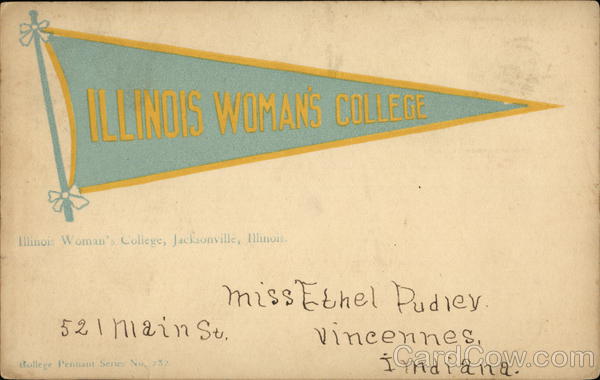 ILLINOIS WOMAN'S COLLEGE
Illinois Woman's College, Jacksonville, Illinois.
Miss Ethel Pudley.
521 Main St. Vincennes,
Indiana.
College Pennant Series No. 232
CardCow.com